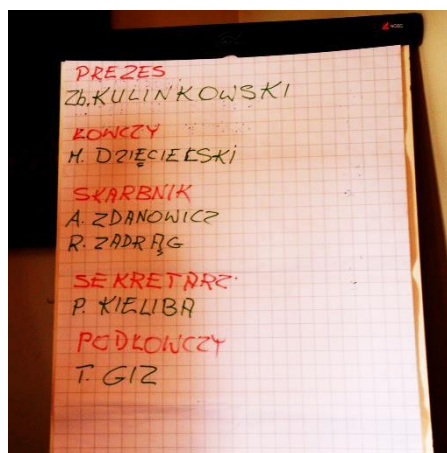 PREZES
Zb. KULINKOWSKI
ŁOWCZY
M. DZIĘCIELSKI
SKARBNIK
A. ZDANOWICZ
R. ZADRĄG
SEKRETARZ
P. KIELIBA
PODŁOWCZY
T. GIZ